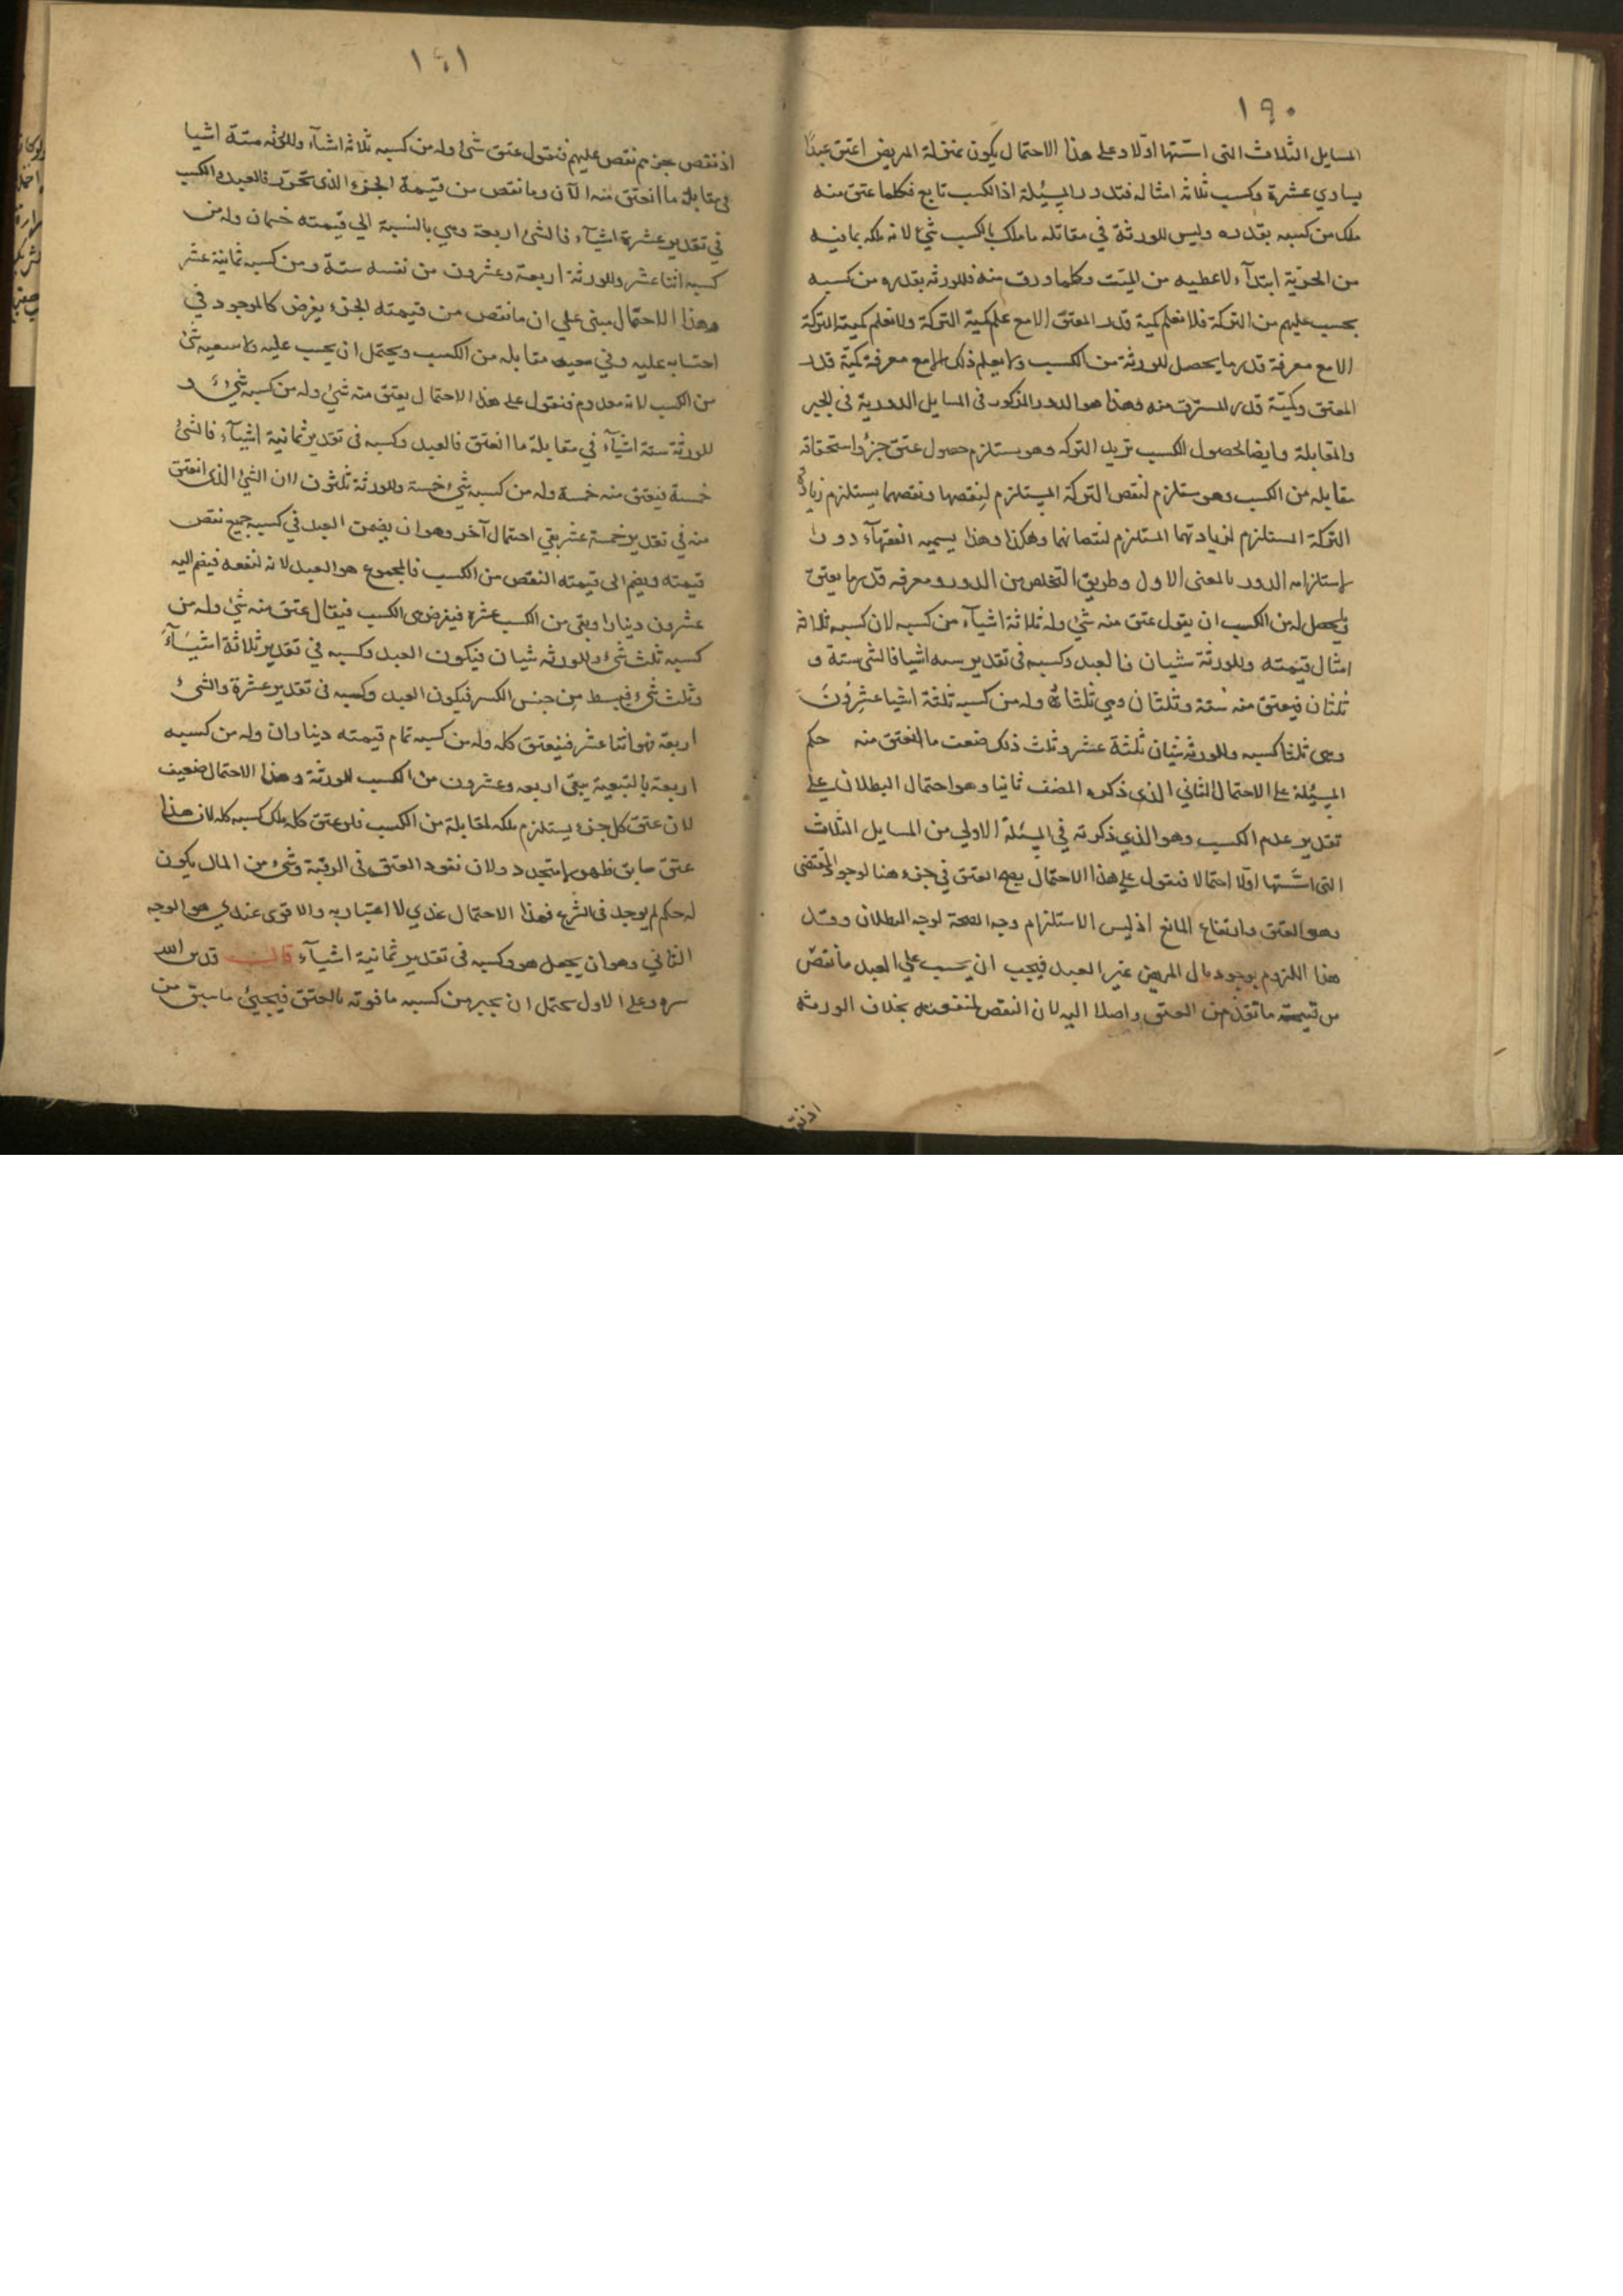 ١٩٠
المسايل الثلاث التى اسستها اوّلا وعلى هذا الاحتمال يكون بمنزلة المريض اعتق عبدًا
يساوي عشرة وكسب ثلاثة امثاله فتدور المسئلة اذ الكسب تابع فكلما عتق منه
ملك من كسبه بقدره وليس للورثة في مقابله ما ملك بالكسب شئ لانه ملكه بما فيه
من الحرّية ابتدآء لا عطيه من الميّت وكلما ورق منه فللورثه بقدره من كسبه
يحسب عليهم من التركة فلا نعلم كمية قدر المعتق الا مع علم كمية التركة ولا نعلم كمية التركة
الا مع معرفة قدر ما يحصل للورثة من الكسب ولا يعلم ذلك الا مع معرفة كميّة قدر
المعتق وكميّة قدر المسترق منه وهذا هو الدور المذكور فى المسايل الدورية فى الجبر
والمقابلة وايضا لحصول الكسب تزيد التركه وهو يستلزم حصول عتق جزؤ واستحقاقه
مقابله من الكسب وهو مستلزم لنقص التركة المستلزم لنقصها ونقصهما يستلزم زيادة
التركة المستلزم لزيادتهما المستلزم لنقصانهما وهكذا وهذا يسميه الفقهآء دورا
لاستلزامه الدور بالمعنى الاول وطريق التخلص من الدور ومعرفه قدر ما يعتق
ويحصل له من الكسب ان يقول عتق منه شئ وله ثلاثة اشيآء من كسبه لان كسبه ثلاثة
امثال قيمته وللورثة شيئان فالعبد وكسبه فى تقدير سته اشيا فالشئ ستة و
ثلثان فيعتق منه ستة وثلثان وهي ثلثاه وله من كسبه ثلثة اشيا عشرون
وهى ثلثا كسبه وللورثه شيئان ثلثة عشر وثلث ذلك ضعف ما انعتق منه حكم
المسئلة على الاحتمال الثاني الذى ذكره المصنف ثانيا وهو احتمال البطلان على
تقدير عدم الكسب وهو الذي ذكرته في المسئلة الاولى من المسايل الثلاث
التى اسستها اوّلا احتمالا فنقول على هذا الاحتمال يصح العتق في جزء هنا لوجود المقتضى
وهو العتق وارتفاع المانع اذ ليس الاستلزام وجه الصحة لوجه البطلان وقد
هذا اللزوم بوجود مال المريض غير العبد فيجب ان يحسب على العبد ما نقص
من قيمته ما نقذ من العتق واصلا اليه لان النقص لمنفعته بخلاف الورثه
اذ نقص
١٤١
اذ نقص جزءهم نقص عليهم فنقول عتق شئ وله من كسبه ثلاثة اشيآء وللورثه ستة اشيا
فى مقابلة ما انعتق منه الآن وما نقص من قيمة الجزء الذى تحرّر فالعبد والكسب
في تقدير عشرة اشيآء فالشئ اربعة وهي بالنسبة الي قيمته خمسان وله من
كسبه اثنا عشر وللورثة اربعة وعشرون من نفسه ستة ومن كسبه ثمانية عشر
وهذا الاحتمال مبني علي ان ما نقص من قيمته الجزء يفرض كالموجود في
احتسابه عليه وفي مقابله من الكسب ويحتمل ان يحسب عليه ولا شئ
من الكسب لانه معدوم فنقول على هذا الاحتمال يعتق منه شئ وله من كسبه شئ و
للورثة ستة اشيآء في مقابلة ما انعتق فالعبد وكسبه فى تقدير ثمانية اشيآء فالشئ
خمسة فيعتق منه خمسة وله من كسبه شئ خمسة وللورثة ثلثون لان الشئ الذى انعتق
منه في تقدير خمسة عشر بقي احتمال آخر وهو ان يضمن العبد في كسبه جميع نقص
قيمته ويضم الى قيمته النقص من الكسب فالمجموع هو العبد لانه لنفعه فيضم اليه
عشرون دينارا وبقى من الكسب عشرة فيفرض هى الكسب فيقال عتق منه شئ وله من
كسبه ثلث شئ وللورثه شيئان فيكون العبد وكسبه في تقدير ثلاثة اشيآء
وثلث شئ فيبسط من جنس الكسر فيكون العبد وكسبه فى تقدير عشرة والشئ
اربعة فهو اثنا عشر فينعتق كله وله من كسبه تمام قيمته ديناران وله من كسبه
اربعة بالتبعية يبقى اربعه وعشرون من الكسب للورثة وهذا الاحتمال ضعيف
لان عتق كل جزء يستلزم ملكه لمقابلة من الكسب فلو عتق كله ملك كسبه كله لان هذا
عتق سابق ظهر لا متجدد ولان نفوذ العتق فى الرقبة وشئ من المال يكون
له حكم لم يوجد فى الشرع فهذا الاحتمال عندي لا اعتبار به والاقوى عندي هو الوجه
الثاني وهو ان يجعل هو وكسبه فى تقدير ثمانية اشيآء قال قدس الله
سره وعلى الاول يحتمل ان يجبر من كسبه ما فوته بالعتق فيجئ ما سبق من